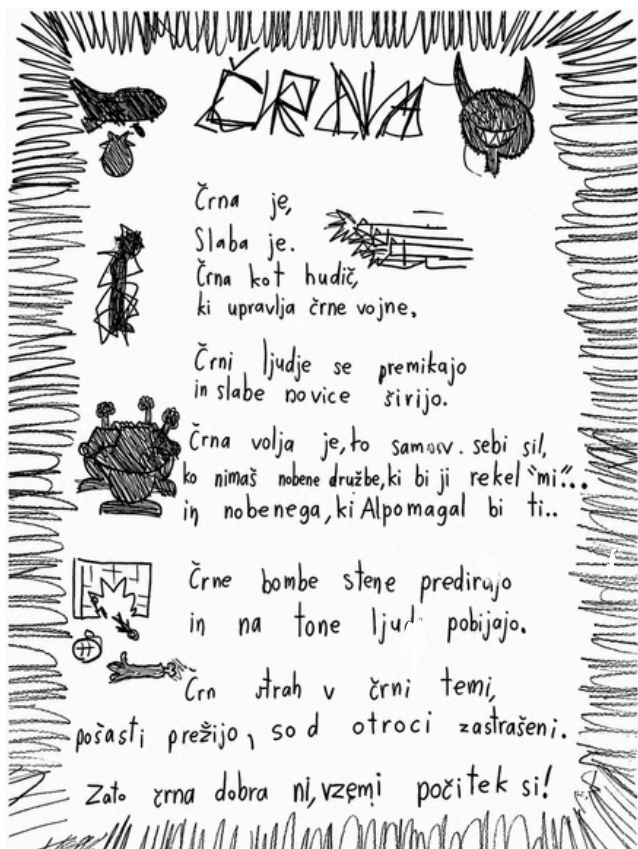 ČRNA
Črna je,
Slaba je.
Črna kot hudič,
ki upravlja črne vojne.
Črni ljudje se premikajo
in slabe novice širijo.
Črna volja je, to samo v. sebi sil,
ko nimaš nobene družbe, ki bi ji rekel "mi"...
in nobenega, ki Alpomagal bi ti..
Črne bombe stene predirajo
in na tone ljudi pobijajo.
Črn strah v črni temi,
pošasti prežijo, so d otroci zastrašeni.
Zato črna dobra ni, vzemi počitek si!